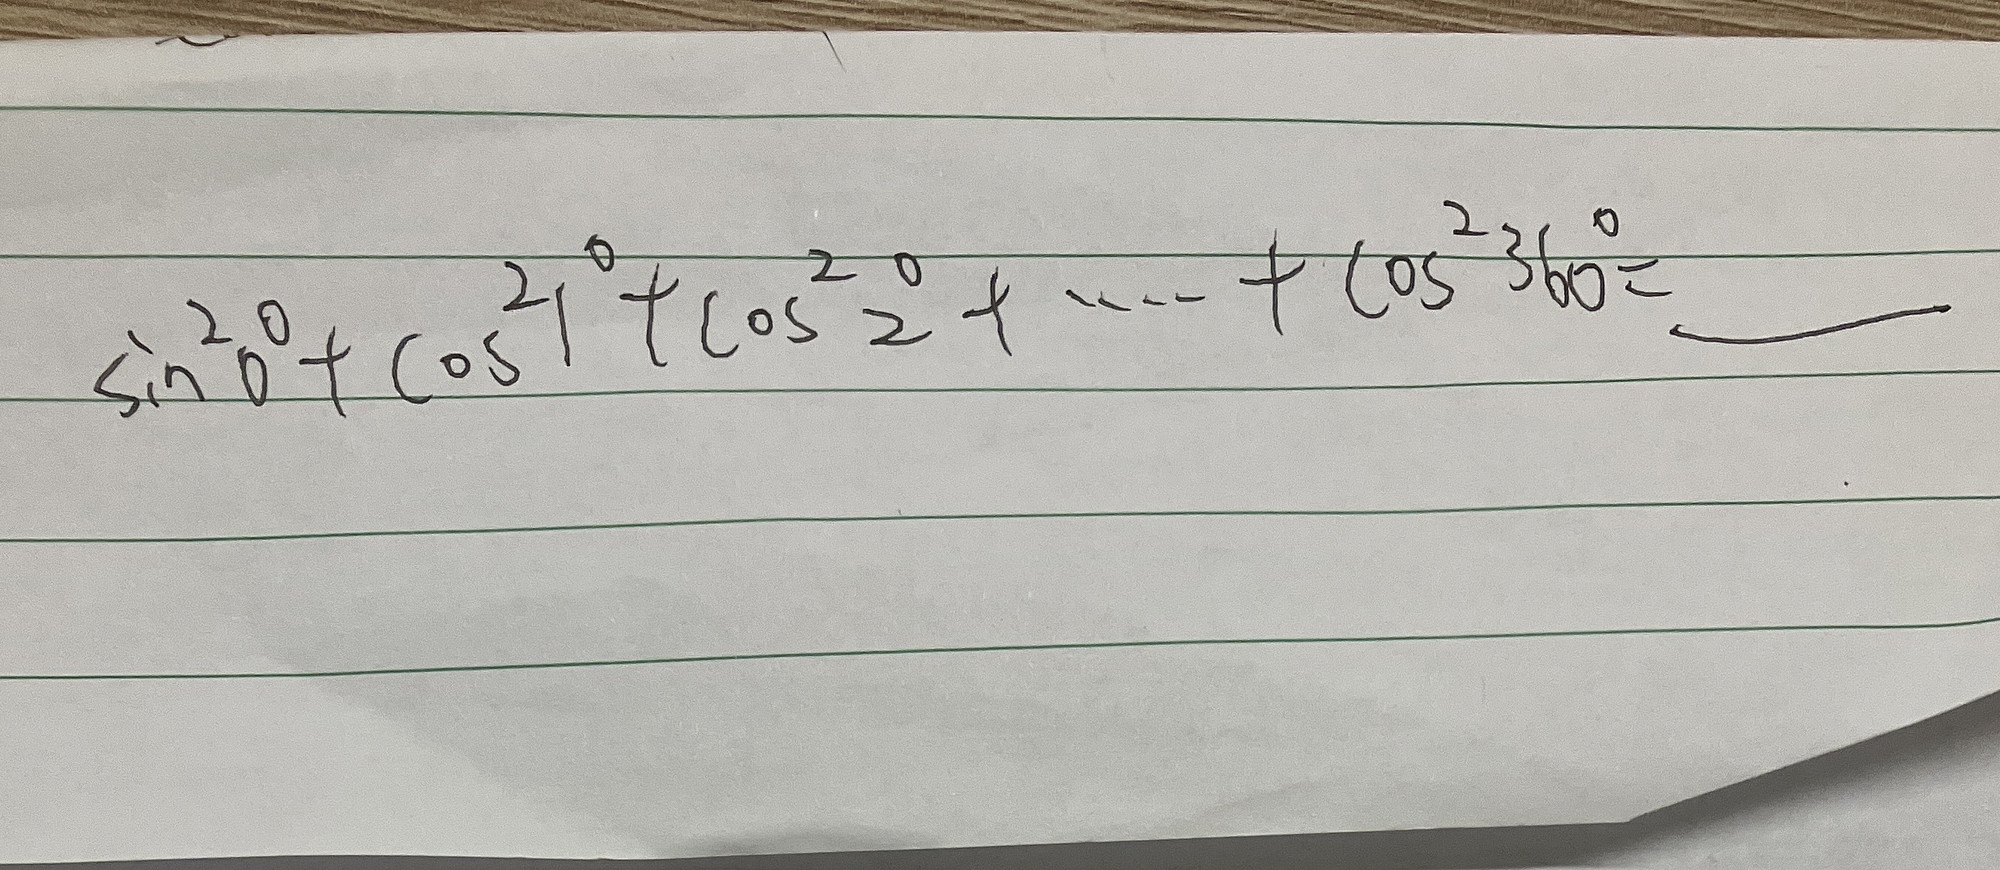 sin²0° + cos²1° + cos²2° + ····· + cos²360° = ____